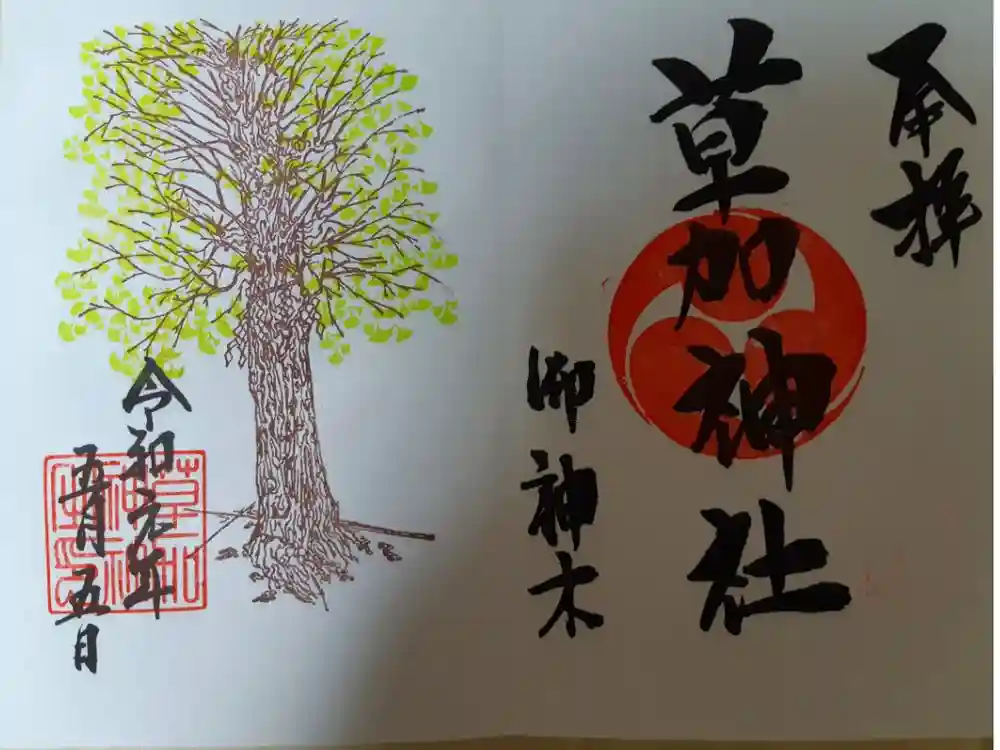 奉拝
草加神社
御神木
令和元年
五月五日
草加
神社